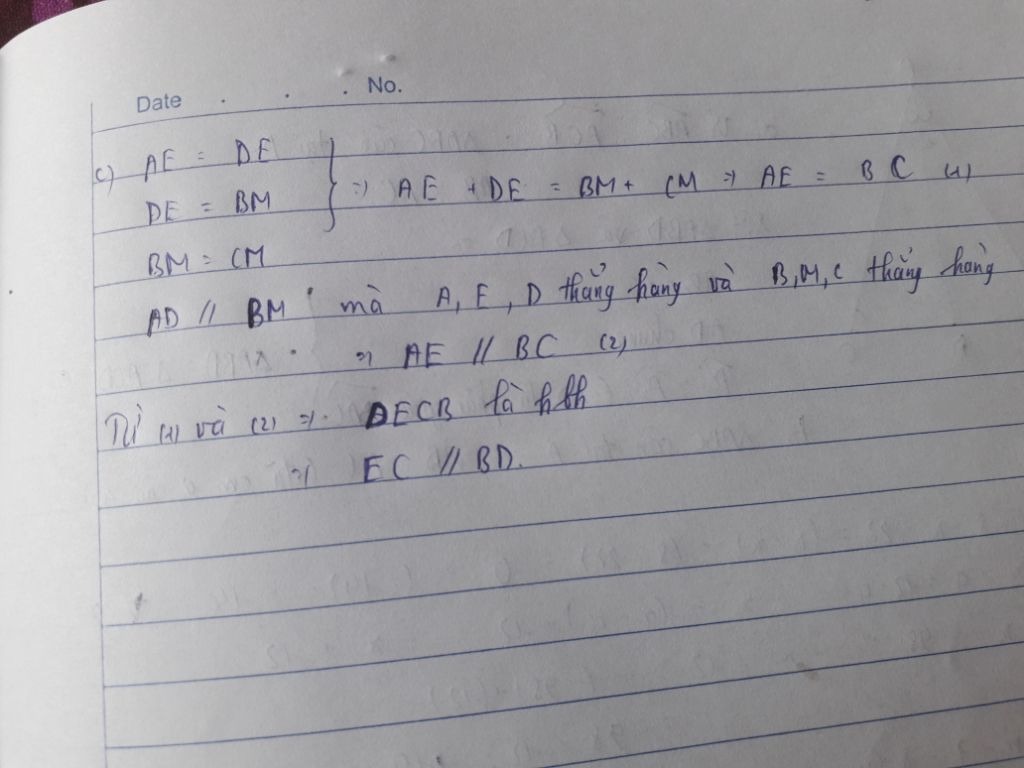 Date . . . No.
c) AE = DE
DE = BM } => AE + DE = BM + CM => AE = BC (1)
BM = CM
AD // BM mà A, E, D thẳng hàng và B, M, C thẳng hàng
=> AE // BC (2)
Từ (1) và (2) => DECB là hbh
=> EC // BD.